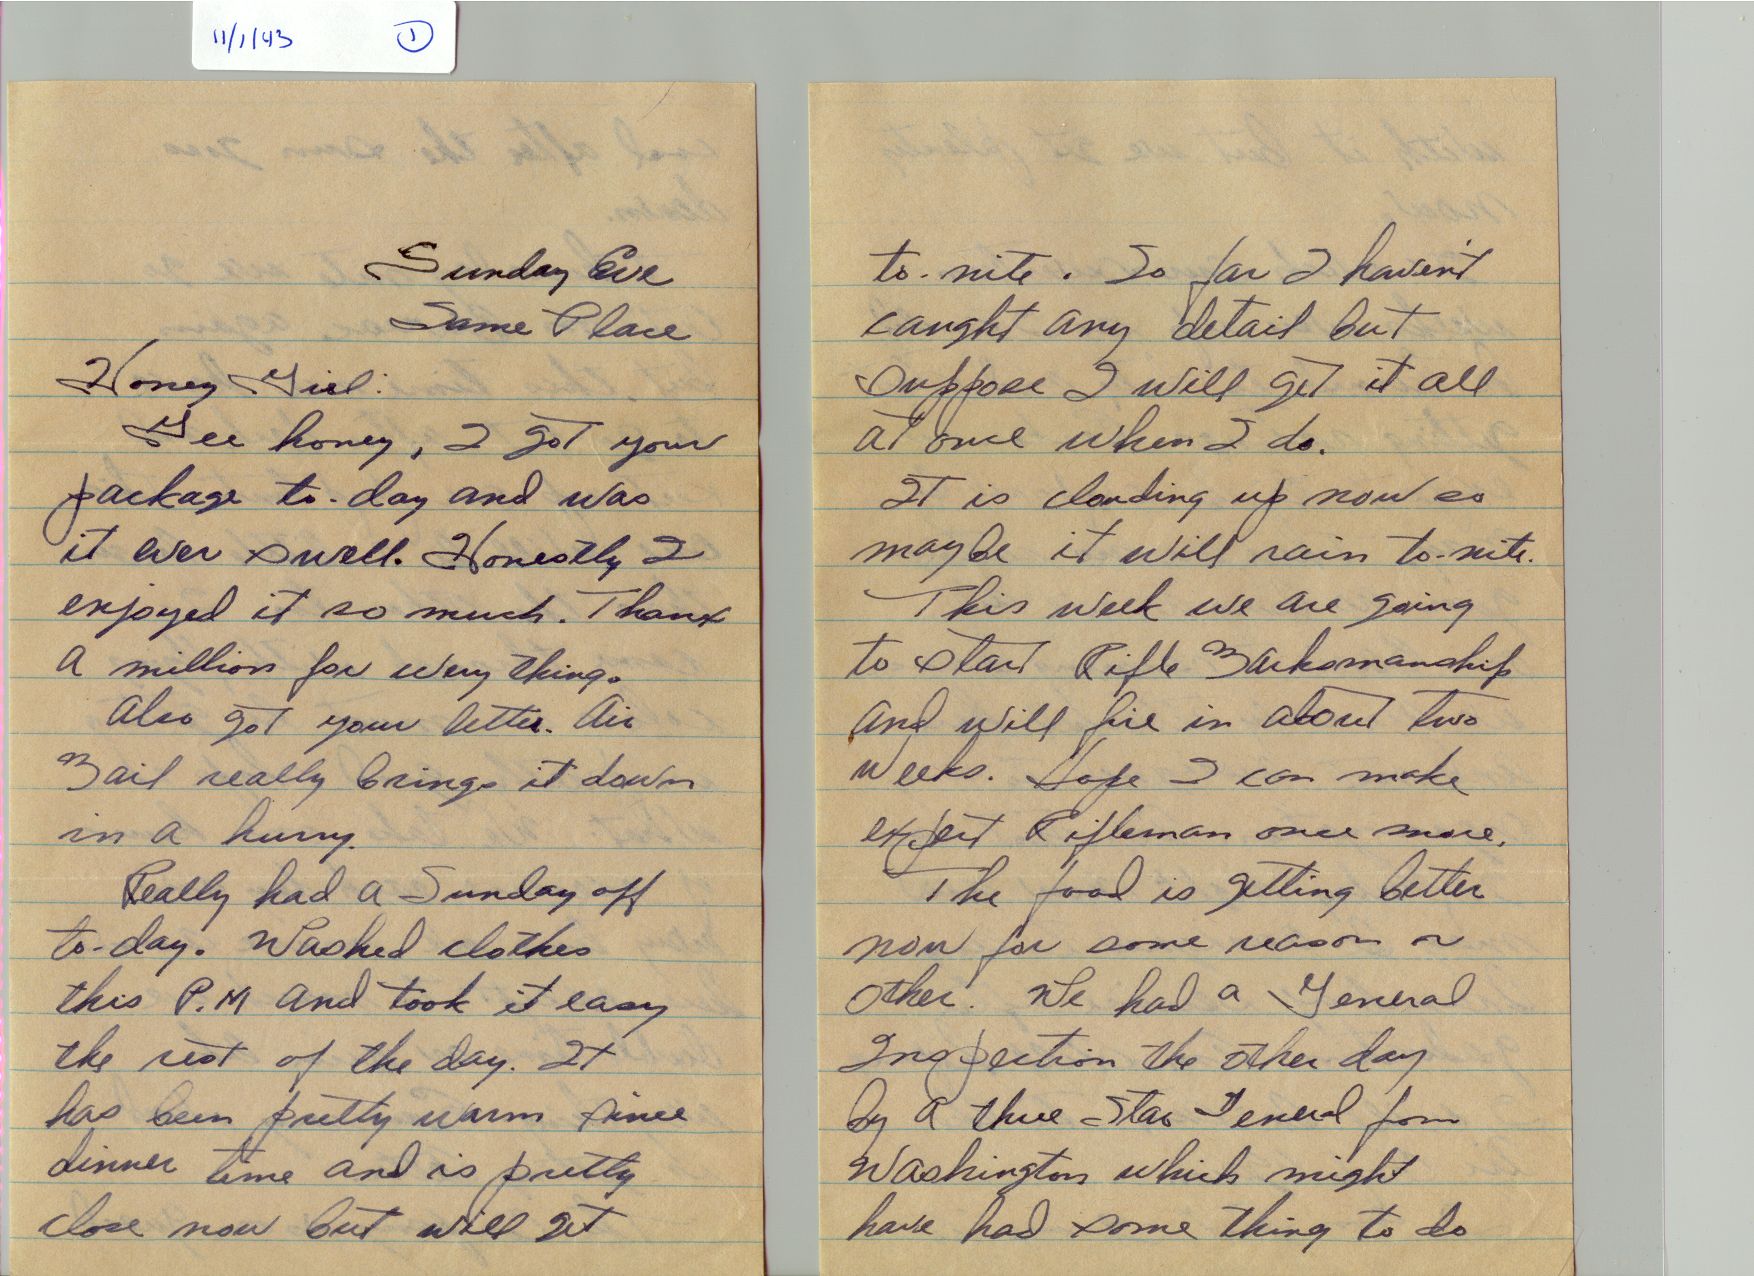 11/1/43 1
Sunday Eve
Same Place
Honey Girl:
Gee honey, I got your
package to-day and was
it ever swell. Honestly I
enjoyed it so much. Thanx
a million for every thing.
Also got your letter. Air
Mail really brings it down
in a hurry.
Really had a Sunday off
to-day. Washed clothes
this P.M and took it easy
the rest of the day. It
has been pretty warm since
dinner time and is pretty
close now but will get
to-nite. So far I haven't
caught any detail but
suppose I will get it all
at once when I do.
It is clouding up now so
maybe it will rain to-nite.
This week we are going
to start Rifle Marksmanship
and will fire in about two
weeks. Hope I can make
expert Rifleman once more.
The food is getting better
now for some reason or
other. We had a General
Inspection the other day
by a three Star General from
Washington which might
have had some thing to do